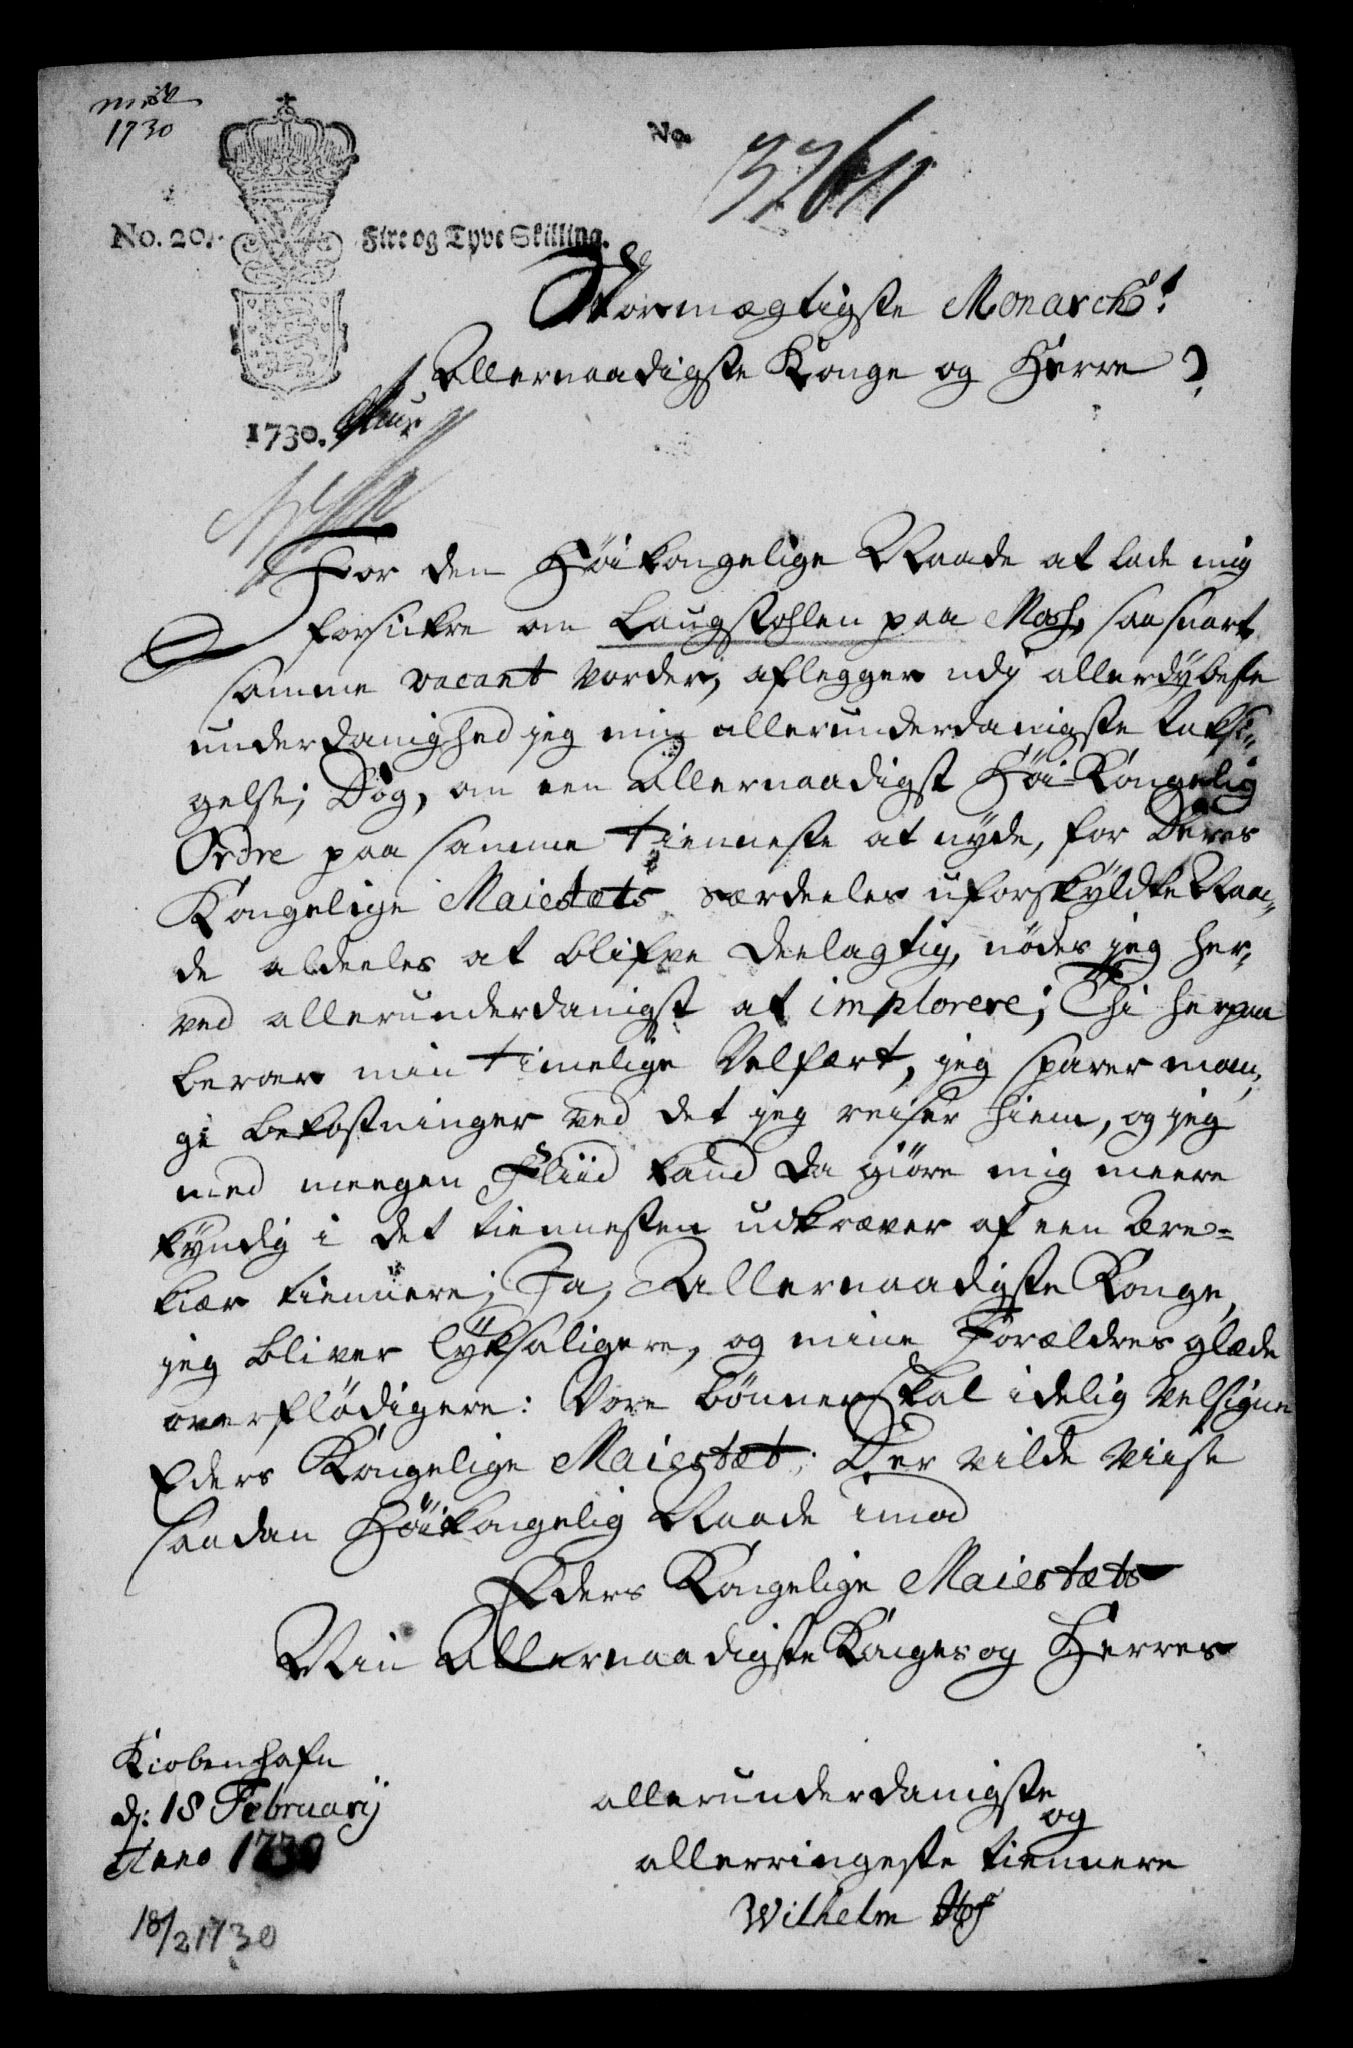 1730
No.
No. 20.
Fire og Tyve Skilling.
Stormægtigste Monarch!
Allernaadigste Konge og Herre
1730.
For den Høikongelige Naade at lade mig
forsickre om Laugstohlen paa Mosh, saa snart
samme vacant vorder, aflegger udj allerdybeste
underdanighed jeg min allerunderdanigste taksi-
gelse; Dog, om een Allernaadigst Høi-Kongelig
Ordre paa samme tienneste at nyde, for Deres
Kongelige Maiestets særdeeles uforskyldte Naa-
de aldeeles at blifve deelagtig, nødes jeg her-
ved allerunderdanigst at implorere; Thi herpaa
beroer min timelige Velfært, jeg sparer man-
ge bekostninger ved det jeg reiser hiem, og jeg
med meegen Fliid kand da giøre mig meere
kyndig i det tiennesten udkræver af een Ære-
kiær tiennere; Ja, Allernaadigste Konge,
jeg bliver lyksaligere, og mine Forældres glæde
overflødigere: Vore bønner skal idelig velsigne
Eders Kongelige Maiestæt; Der vilde viise
saadan Høikongelig Naade imod
Eders Kongelige Maiestæts
Min Allernaadigste Konges og Herres
Kiobenhafn
dj: 18 Februarij
Anno 1730
allerunderdanigste
og
allerringeste tiennere
Wilhelm Hof
18/2 1730